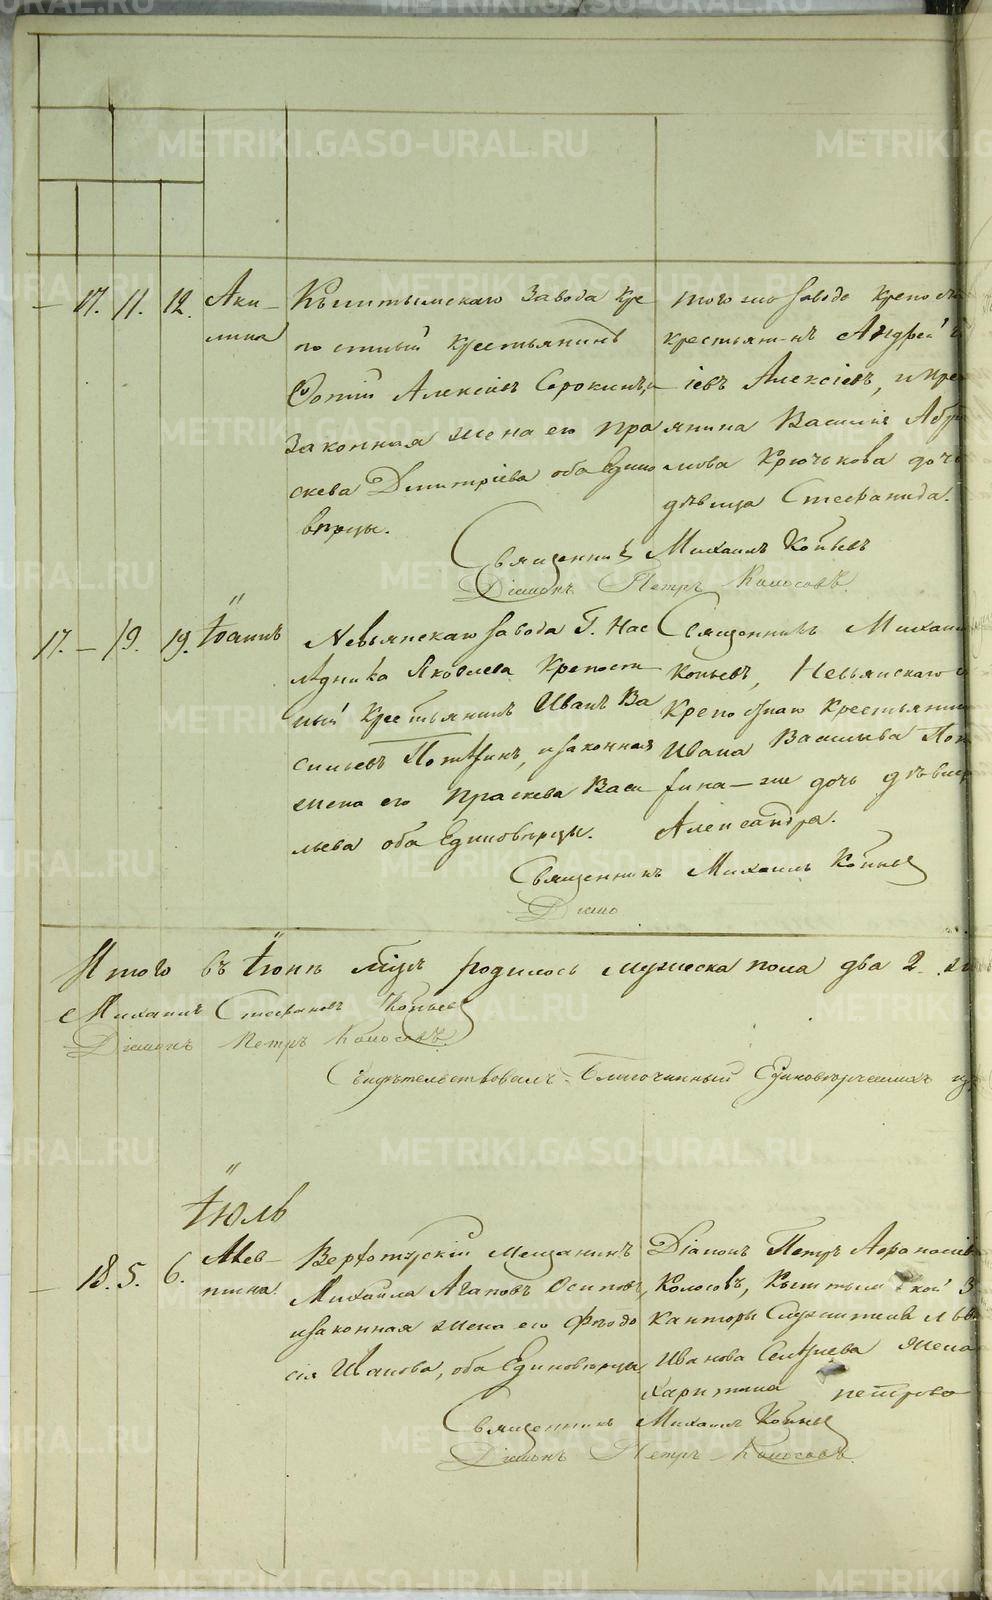 METRIKI.GASO-URAL.RU
— 17. 11. 12. Аки-
лина
Кыштымскаго завода кре
постный крестьянинъ
Фотій Алексіевъ Сорокинъ, и
законная жена его Пра
скева Дмитріева оба едино
вѣрцы.
того же завода крепостн
крестьянинъ Андрей
іевъ Алексіевъ, и кре
янина Василія Абра
мова Крючькова дочь
дѣвица Стефанида.
Священникъ Михаилъ Копьевъ
Діаконъ Петръ Колосовъ.
17. — 19. 19. Іоаннъ
Невьянскаго завода Г. Нас
лѣдника Яковлева крепост
ный крестьянинъ Иванъ Ва
сильевъ Потѣзинъ, и законная
жена его Праскева Васи
льева оба единовѣрцы.
Священникъ Михаилъ
Копьевъ, Невьянскаго
крепостнаго крестьянин
Ивана Васильева Пот
ѣзина — же дочь дѣвица
Александра.
Священникъ Михаилъ Копьевъ
Діако
Итого въ Іюнѣ мцѣ родилось мужеска пола два 2.
Михаилъ Стефановъ Копьевъ
Діаконъ Петръ Колосовъ.
Свидѣтельствовалъ: Благочинный Единовѣрческихъ
Іюль
— 18. 5. 6. Алев-
тина
Верхотурскій мещанинъ
Михаила Агаповъ Осиповъ,
и законная жена его Феодо
сія Иванова, оба единовѣрцы
Діаконъ Петръ Афонасіев
Колосовъ, Кыштымской З
канторы служителя Льв
Иванова Селезнева жена
Харитина Петрова
Священникъ Михаилъ Копьевъ
Діаконъ Петръ Колосовъ.